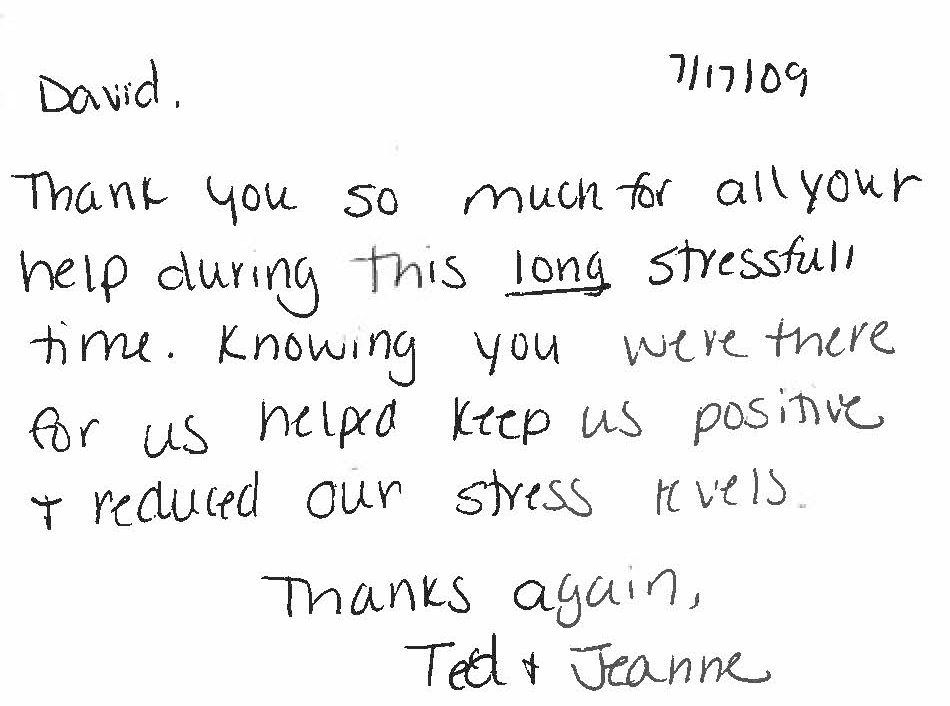 David.
7/17/09
Thank you so much for all your
help during this long stressfull
time. Knowing you were there
for us helped keep us positive
+ reduced our stress levels.
Thanks again,
Ted + Jeanne